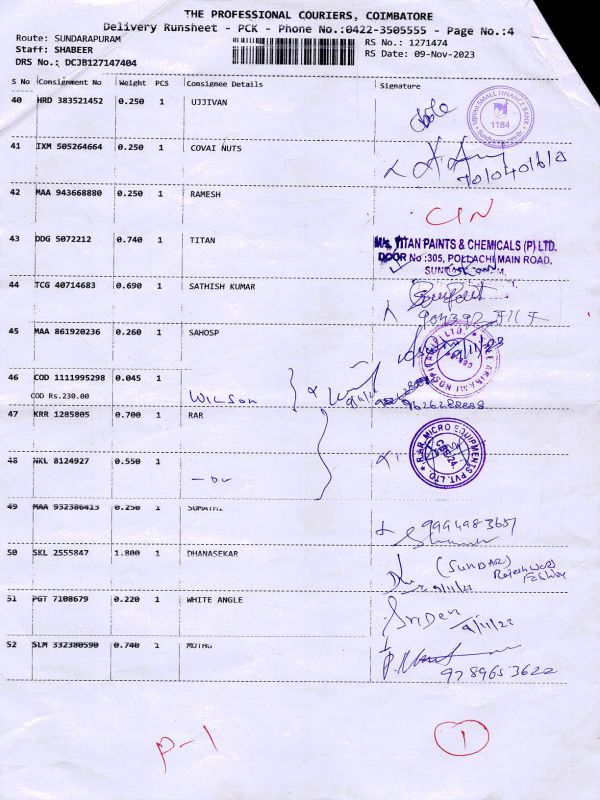 THE PROFESSIONAL COURIERS, COIMBATORE
Delivery Runsheet - PCK - Phone No.:0422-3505555 - Page No.:4
Route: SUNDARAPURAM
RS No.: 1271474
Staff: SHABEER
RS Date: 09-Nov-2023
DRS No.: DCJB127147404
S No Consignment No Weight PCS Consignee Details Signature
40 HRD 383521452 0.250 1 UJJIVAN
SMALL FINANCE BANK
1184
41 IXM 505264664 0.250 1 COVAI NUTS
42 MAA 943668880 0.250 1 RAMESH
43 DDG 5072212 0.740 1 TITAN
M/s. TITAN PAINTS & CHEMICALS (P) LTD.
DOOR No :305, POLLACHI MAIN ROAD,
44 TCG 40714683 0.690 1 SATHISH KUMAR
45 MAA 861920236 0.260 1 SAHOSP
9/11/23
46 COD 1111995298 0.045 1
COD Rs.230.00
WILSON
9626288888
47 KRR 1285805 0.700 1 RAR
R.A.R. MICRO EQUIPMENTS PVT. LTD.
48 NKL 8124927 0.550 1
49 MAA 932386413 0.250 1 SUMATHI
50 SKL 2555847 1.800 1 DHANASEKAR
(SUNDAR)
51 PGT 7108679 0.220 1 WHITE ANGLE
9/11/23
52 SLM 332380590 0.740 1 MUTHU
9789653622
P-1
1